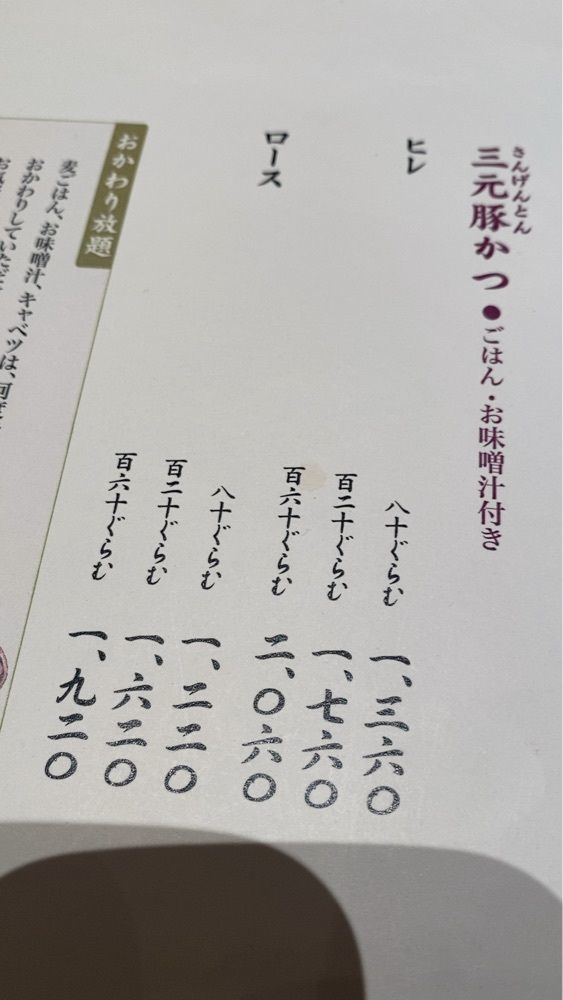 さんげんとん
三元豚かつ●ごはん・お味噌汁付き
ヒレ
八十ぐらむ 一、三六〇
百二十ぐらむ 一、七六〇
百六十ぐらむ 二、〇六〇
ロース
八十ぐらむ 一、二二〇
百二十ぐらむ 一、六二〇
百六十ぐらむ 一、九二〇
おかわり放題
麦ごはん、お味噌汁、キャベツは、何度
おかわりしていただ